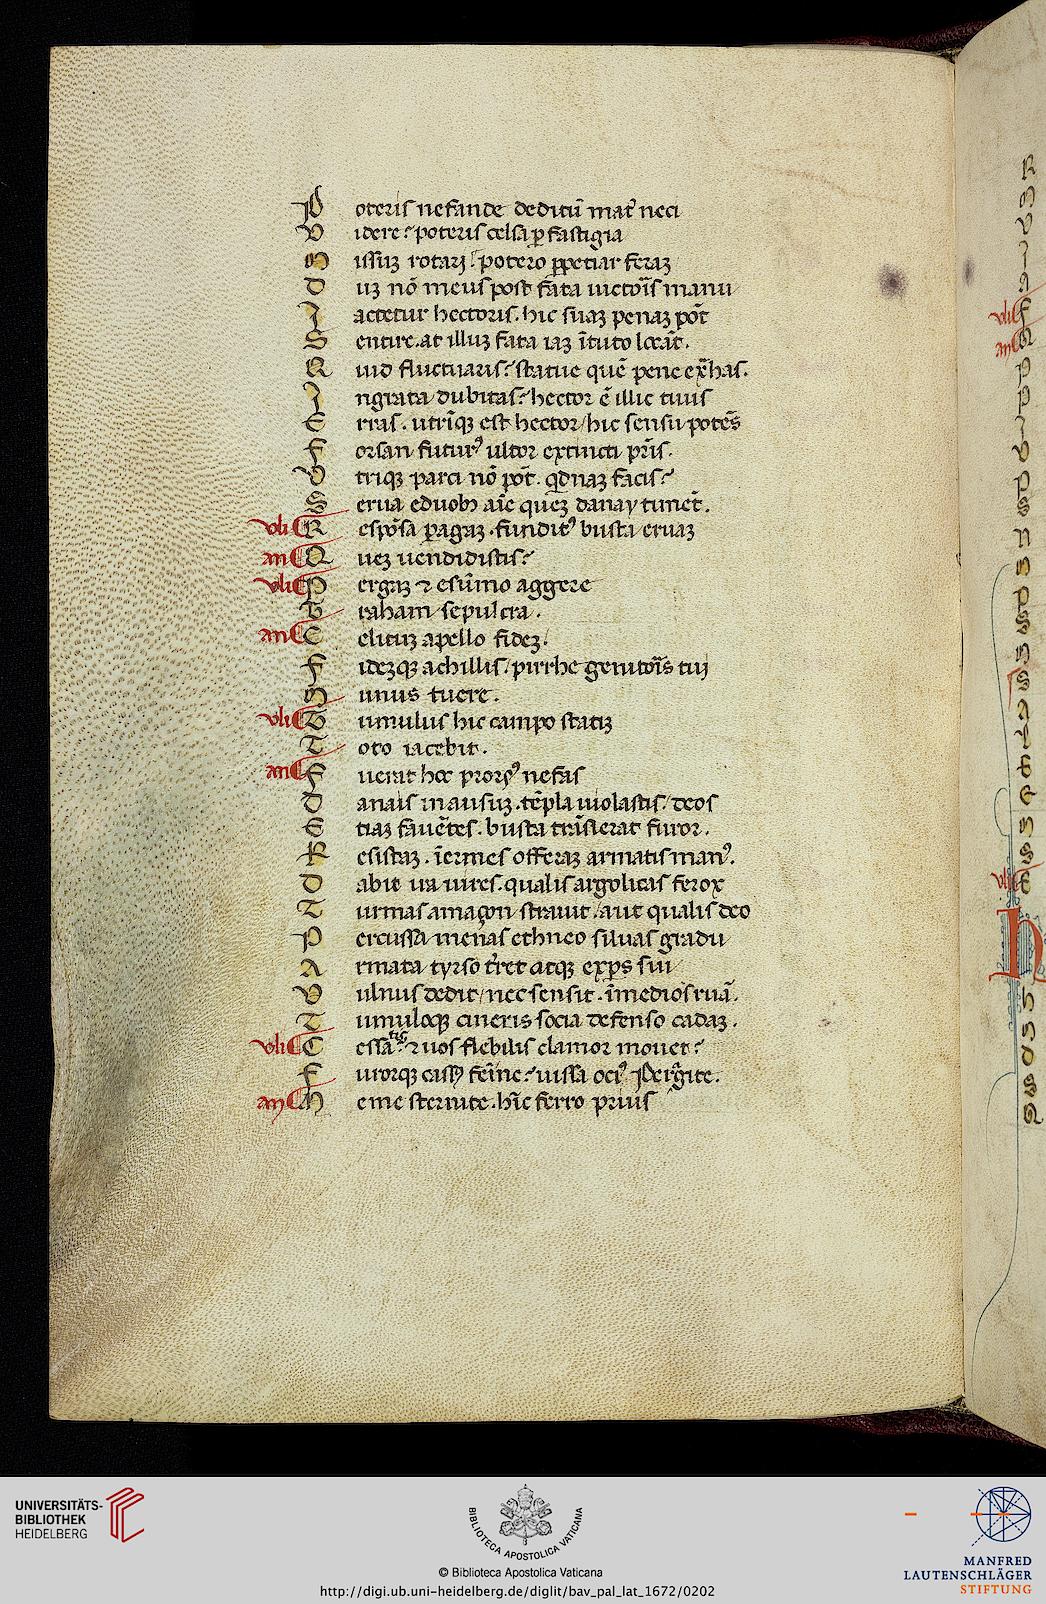 P oteris nefande deditũ mat̃ neci
V idere? poteris celsa ꝑ fastigia
M issuʒ rotari? potero ꝑpetiar feraʒ
D uʒ nõ meus post fata uictoĩs manu
I actetur hectoris. hic suaʒ penaʒ põt
S entire. at illuʒ fata iaʒ ĩ tuto locãt.
Q uid fluctuaris? statue quẽ pene ex̃has.
I ngrata dubitas? hector ẽ illic tuus
E rras. utrĩqʒ est hector / hic sensu potẽs
F orsan futurꝰ ultor extincti pr̃is.
V triqʒ parci nõ põt. qdnaʒ facis?
S erua eduobꝫ aĩe queʒ danay timẽt.
vli R espõsa ꝑagaʒ. funditꝰ busta eruaʒ
an Q ueʒ uendidistis?
vli P ergaʒ ⁊ esũmo aggere
T raham sepulcra.
an C elituʒ apello fideʒ.
F ideʒqʒ achillis / pirrhe genitoĩs tuj
M unus tuere.
vli T umulus hic campo statiʒ
T oto iacebit.
an F uerat hoc prorsꝰ nefas
D anais inausuʒ. tẽpla uiolastis / deos
E tiaʒ fauẽtes. busta trãsierat furor.
R esistaʒ. ĩermes offeraʒ armatis manꝰ.
D abit ira uires. qualis argolicas ferox
T urmas amaçon strauit. aut qualis deo
P ercussa menas ethneo siluas gradu
A rmata tyrso t̃ret atqʒ exp̃s sui
V ulnus dedit / nec sensit. ĩ medios ruã.
T umuloqʒ cineris socia defenso cadaʒ.
vli C essatis? ⁊ uos flebilis clamor mouet?
F urorqʒ cassꝰ fẽine? iussa ociꝰ Pergite.
an M e me sternite. hĩc ferro prius
UNIVERSITÄTS-
BIBLIOTHEK
HEIDELBERG
BIBLIOTECA APOSTOLICA VATICANA
© Biblioteca Apostolica Vaticana
http://digi.ub.uni-heidelberg.de/diglit/bav_pal_lat_1672/0202
MANFRED
LAUTENSCHLÄGER
STIFTUNG